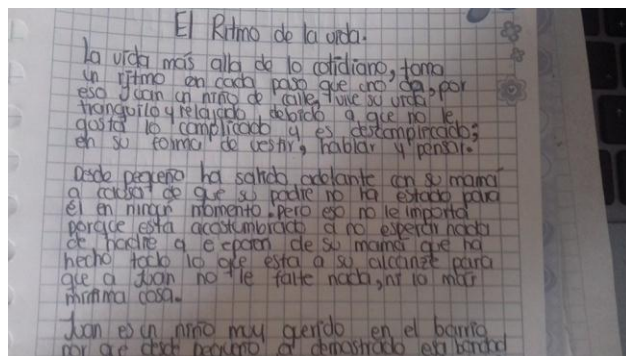 El Ritmo de la vida.
La vida más alla de lo cotidiano, toma
un ritmo en cada paso que uno da, por
eso Juan un niño de calle, vive su vida
tranquilo y relajado debido a que no le
gusta lo complicado y es descomplicado;
en su forma de vestir, hablar y pensar.
Desde pequeño ha salido adelante con su mamá
a causa de que su padre no ha estado para
él en ningún momento. pero eso no le importa
porque esta acostumbrado a no esperar nada
de nadie de su mamá que ha
hecho todo lo que esta a su alcanze para
que a Juan no le falte nada, ni lo más
minima cosa.
Juan es un niño muy querido en el barrio
por que desde pequeño a demostrado esa bondad